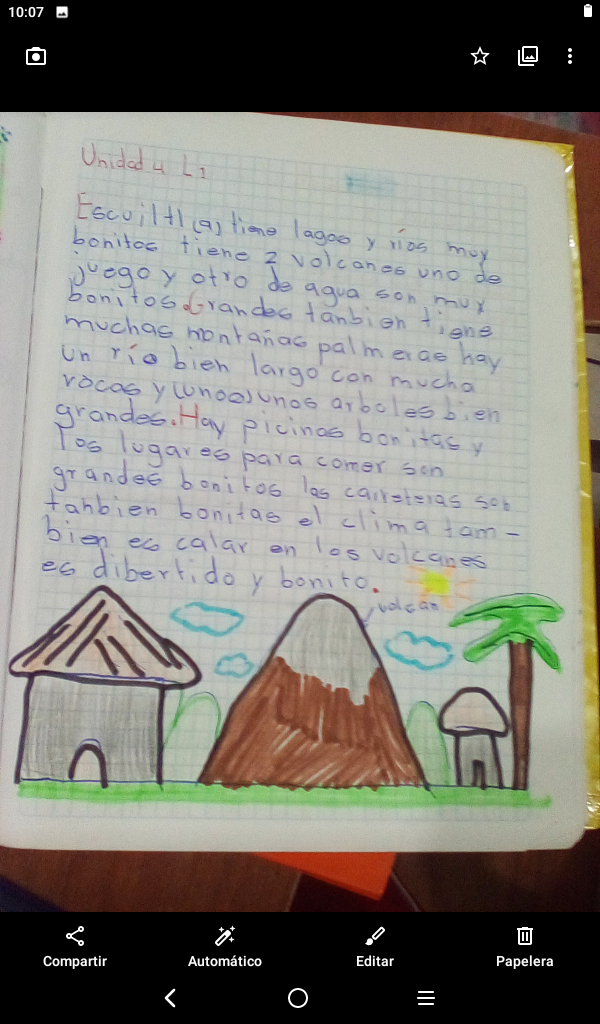 10:07
Unidad 4 L1
Escuiltl (a) tiene lagos y ríos muy
bonitos tiene 2 volcanes uno de
juego y otro de agua son muy
bonitos.Grandes tanbien tiene
muchas montañas palmeras hay
un río bien largo con mucha
rocas y (unos) unos arboles bien
grandes.Hay picinas bonitas y
los lugares para comer son
grandes bonitos las carreteras son
tanbien bonitas el clima tam-
bien es calar en los volcanes
es dibertido y bonito.
volcan
Compartir
Automático
Editar
Papelera